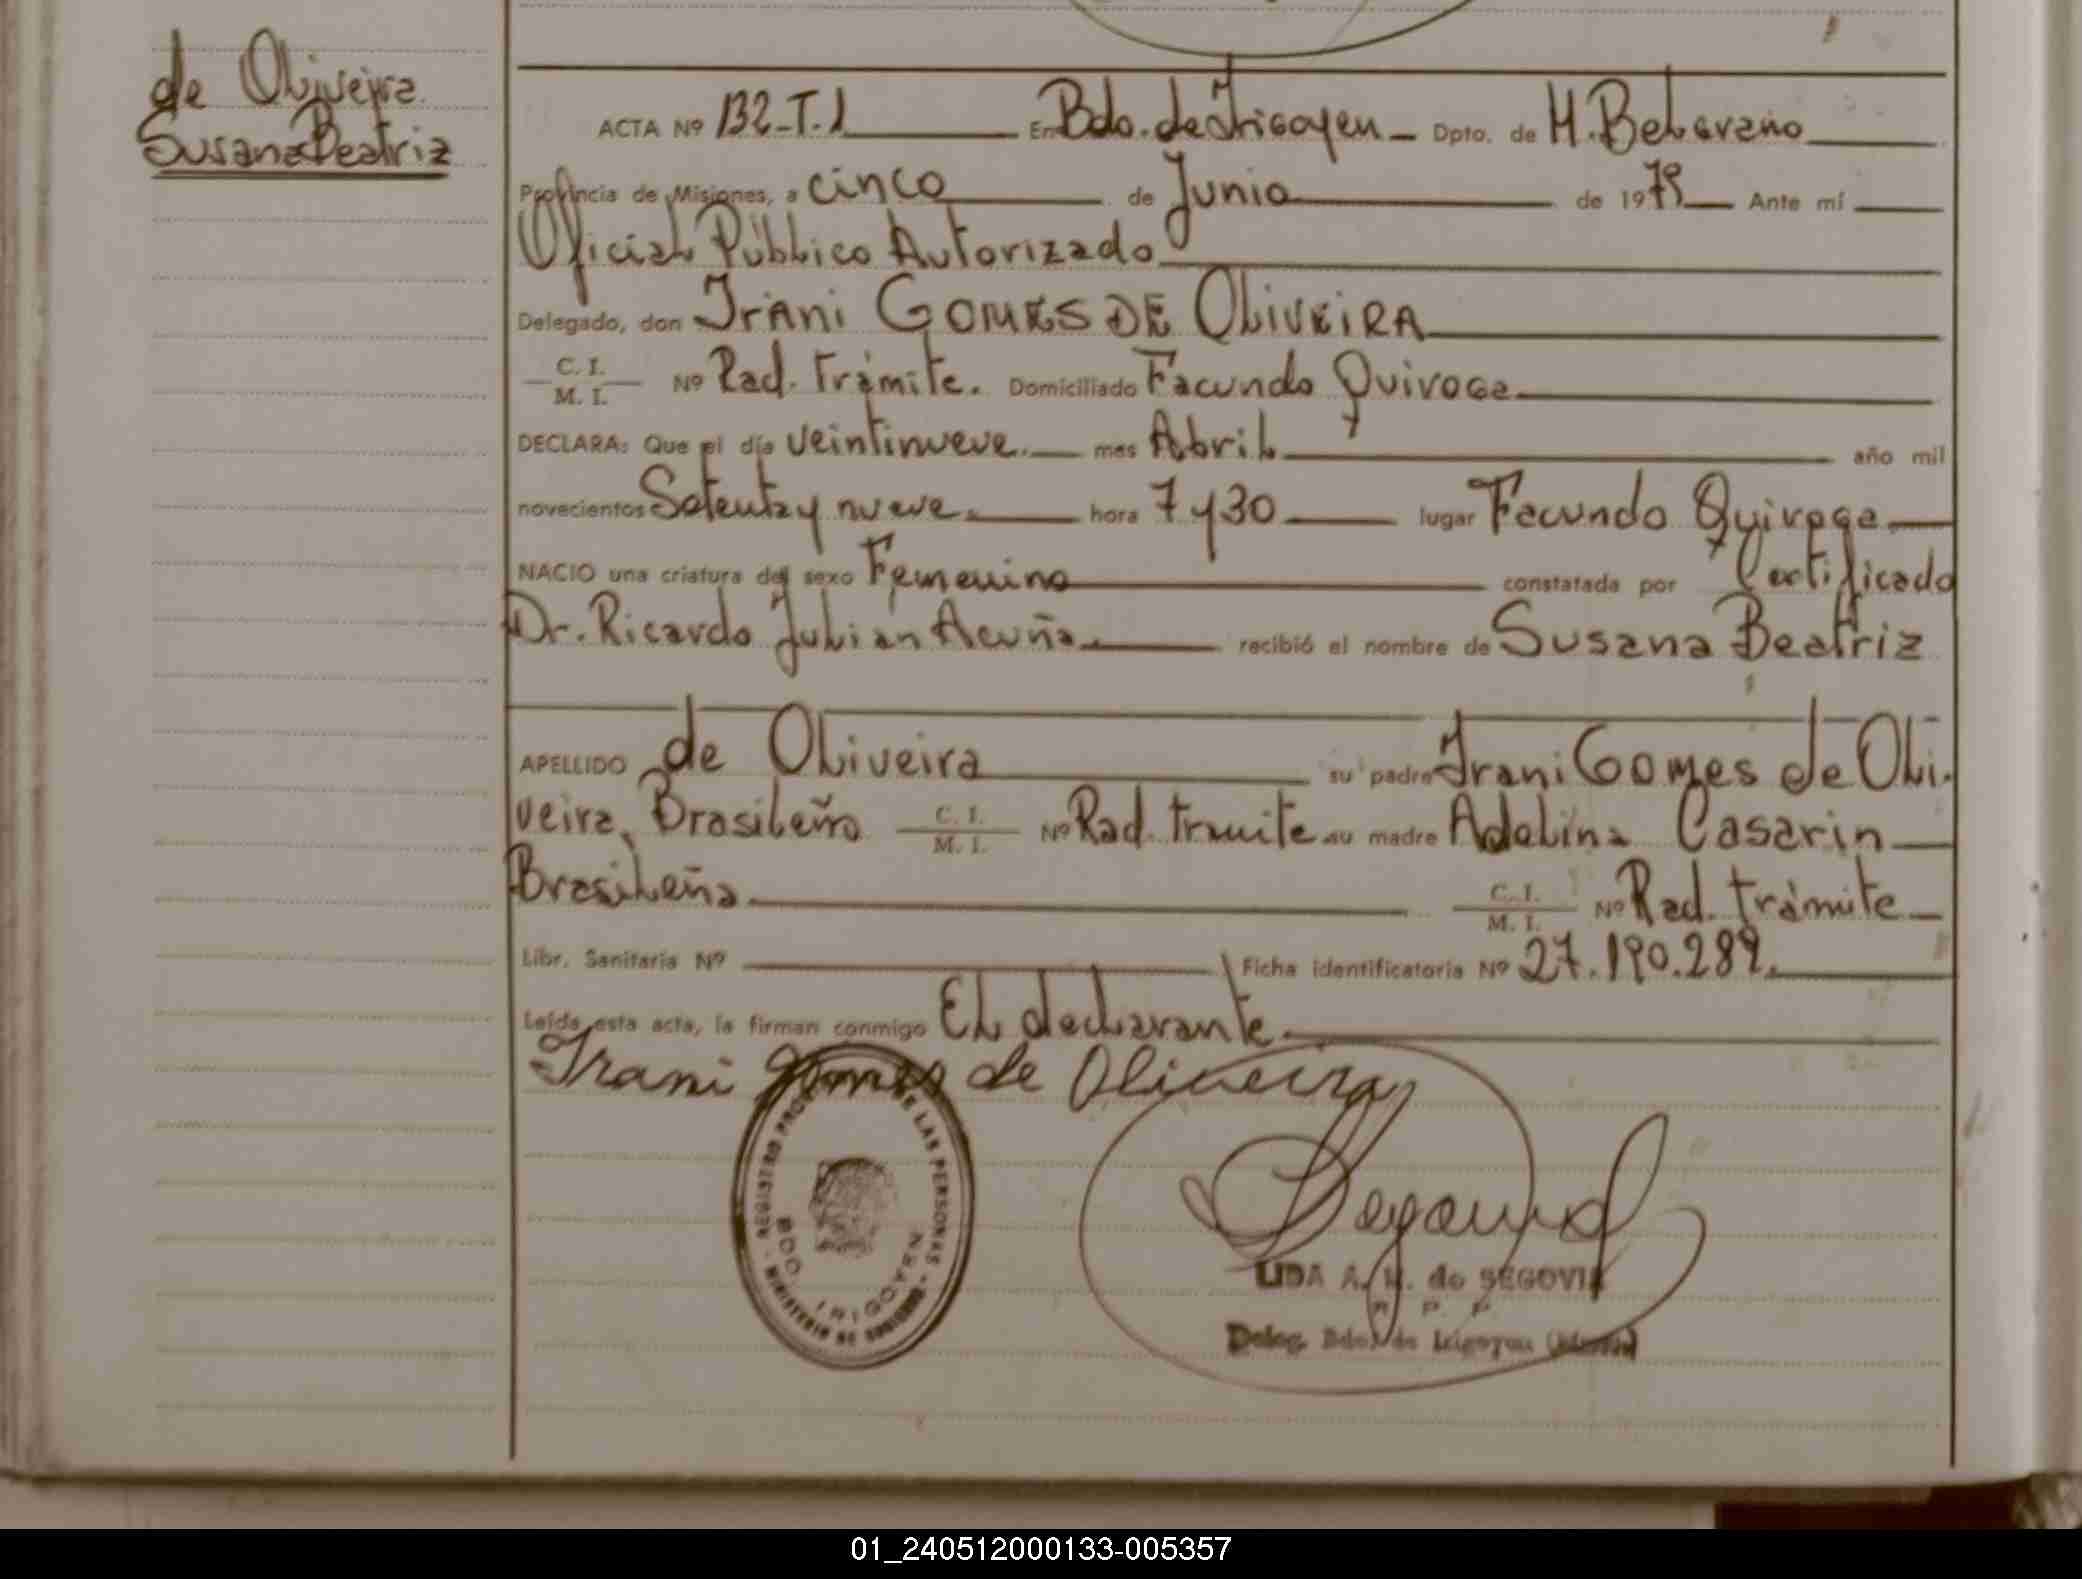 de Oliveira
Susana Beatriz
ACTA Nº 132-T.1 En Bdo. de Irigoyen Dpto. de M. Belgrano
Provincia de Misiones, a cinco de Junio de 1979 Ante mí
Oficial Público Autorizado
Delegado, don Irani GOMES DE OLIVEIRA
C. I.
M. I. Nº Rad. trámite. Domiciliado Facundo Quiroga
DECLARA: Que el día veintinueve. mes Abril año mil
novecientos Setenta y nueve. hora 7 y 30 lugar Facundo Quiroga
NACIO una criatura del sexo Femenino constatada por Certificado
Dr. Ricardo Julián Acuña. recibió el nombre de Susana Beatriz
APELLIDO de Oliveira su padre Irani Gomes de Oli-
veira, Brasileño C. I. M. I. Nº Rad. tramite su madre Adelina Casarin
Brasileña C. I. M. I. Nº Rad. trámite
Libr. Sanitaria Nº Ficha identificatoria Nº 27.190.289.
Leída esta acta, la firman conmigo El declarante.
Irani Gomes de Oliveira
REGISTRO PROV. DE LAS PERSONAS - MINISTERIO DE GOBIERNO -
BDO. IRIGOYEN
LIDA A. de SEGOVIA
Deleg. Bdo. de Irigoyen
01_240512000133-005357